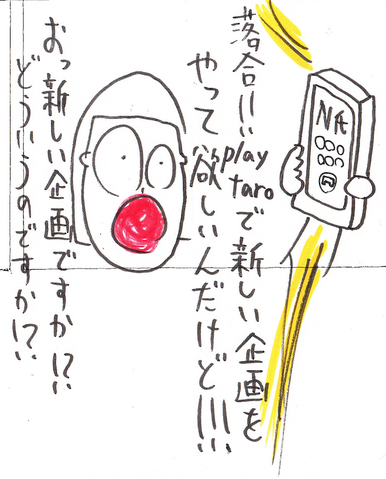 落合!!!
play taroで新しい企画を
やって欲しいんだけど!!!
おっ新しい企画ですか!?
どういうのですか!?